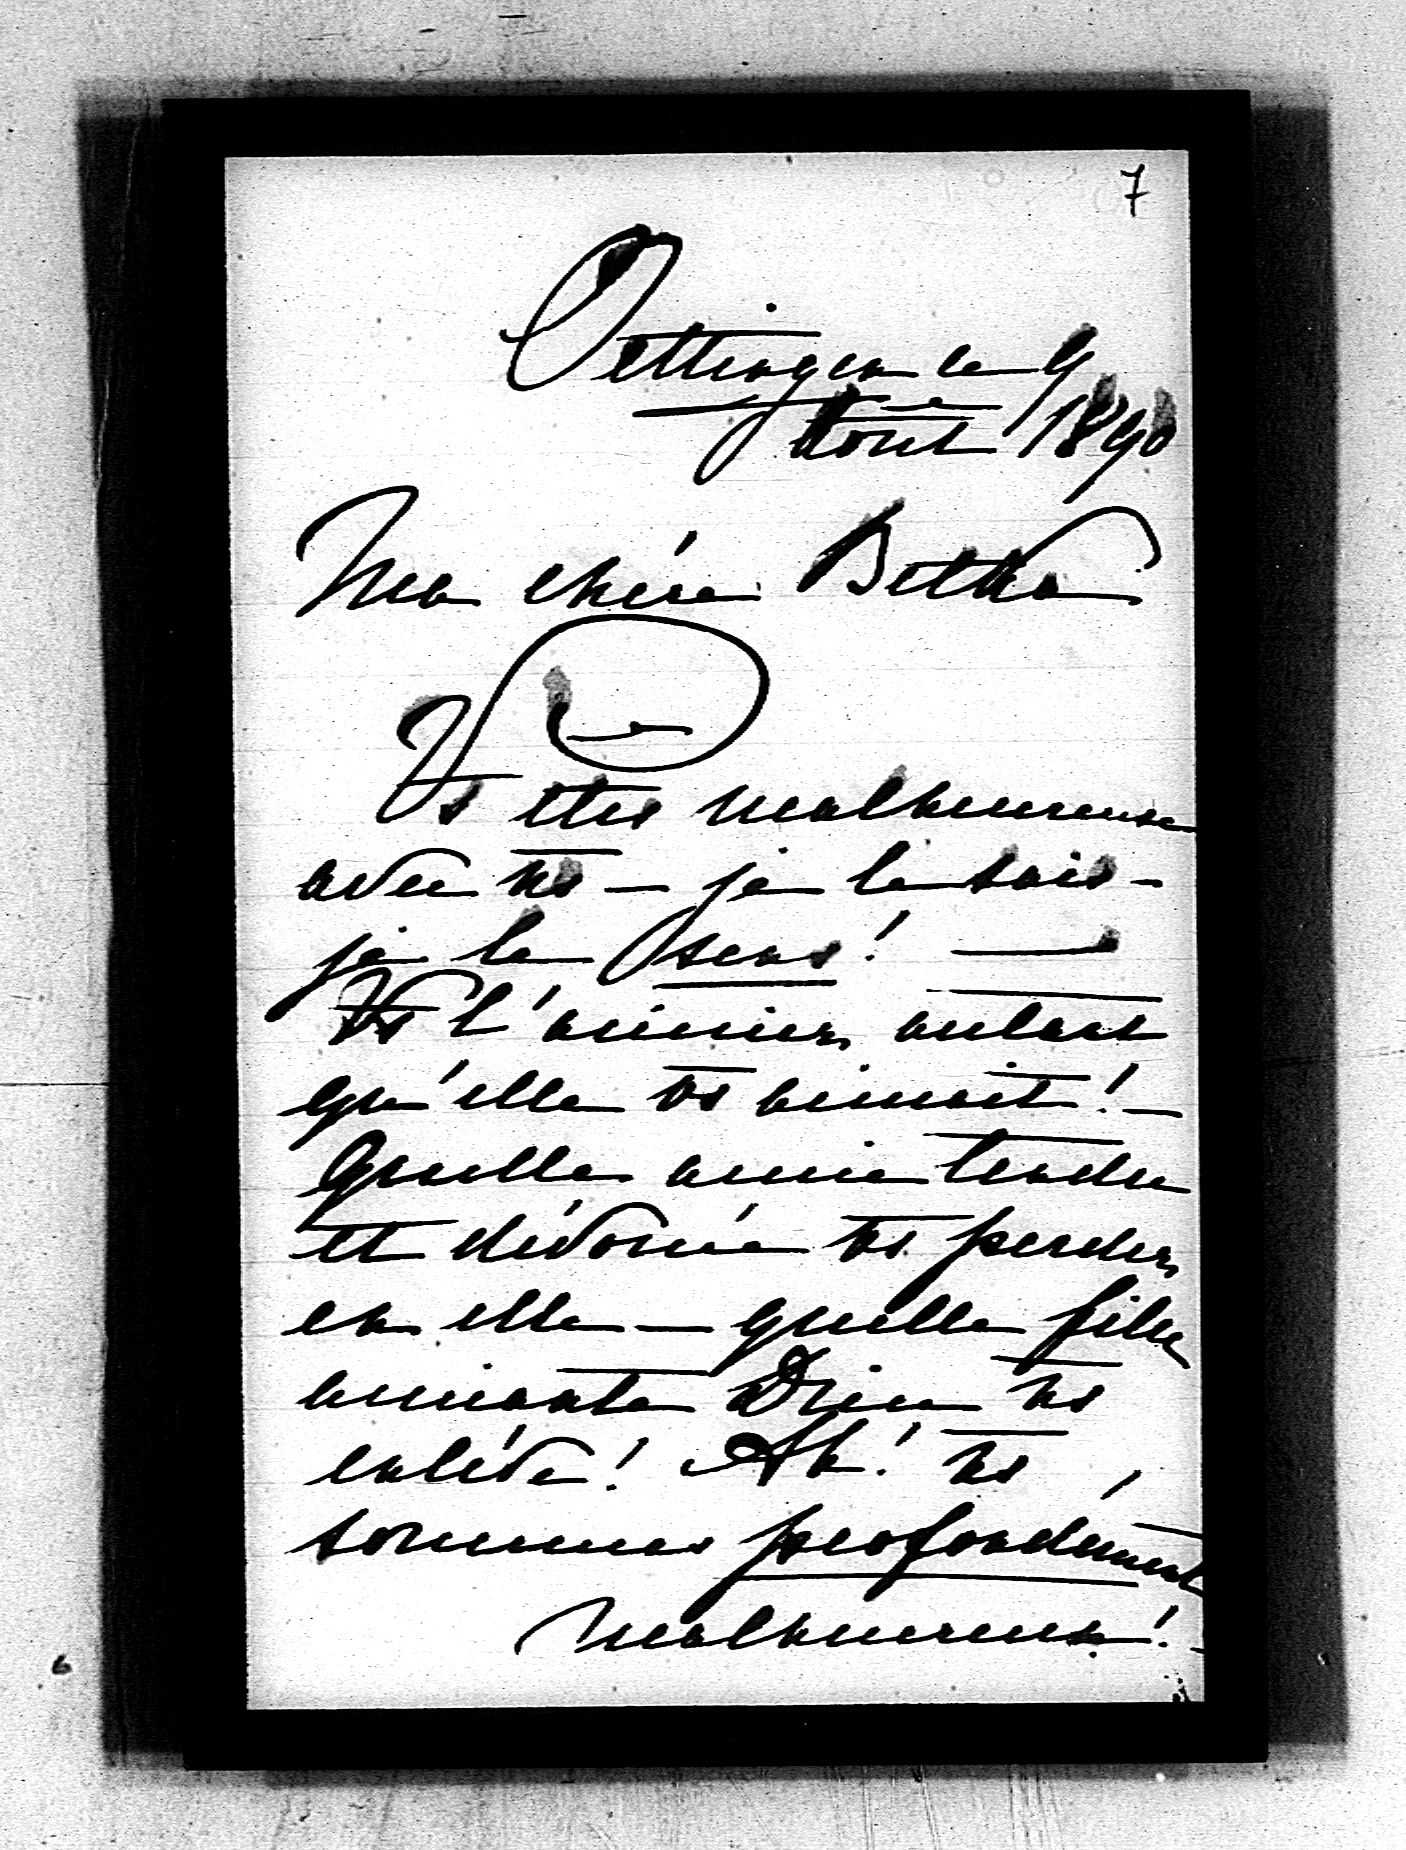 7
Oettingen le 9
Août 1890
Ma chère Betka
Vs êtes malheureuse
avec ns — je le sais —
je le sens! —
Vs l'aimiez autant
qu'elle vs aimait! —
Quelle amie tendre
et dévouée vs perdez
en elle — quelle fille
aimante Dieu ns
enlève! Ah! ns
sommes profondément
malheureux! —